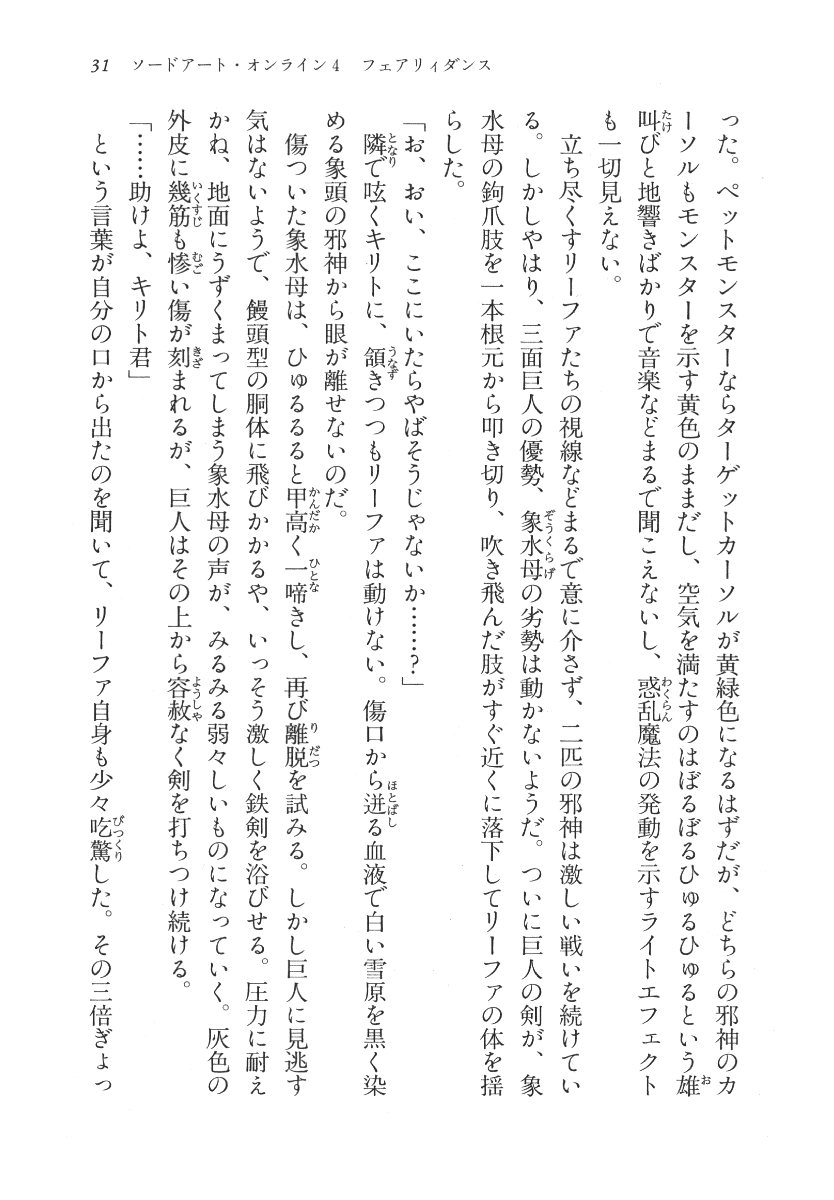 31 ソードアート・オンライン4 フェアリィダンス
った。ペットモンスターならターゲットカーソルが黄緑色になるはずだが、どちらの邪神のカ
ーソルもモンスターを示す黄色のままだし、空気を満たすのはぼるぼるひゅるひゅるという雄
叫びと地響きばかりで音楽などまるで聞こえないし、惑乱魔法の発動を示すライトエフェクト
も一切見えない。
立ち尽くすリーファたちの視線などまるで意に介さず、二匹の邪神は激しい戦いを続けてい
る。しかしやはり、三面巨人の優勢、象水母の劣勢は動かないようだ。ついに巨人の剣が、象
水母の鉤爪肢を一本根元から叩き切り、吹き飛んだ肢がすぐ近くに落下してリーファの体を揺
らした。
「お、おい、ここにいたらやばそうじゃないか……?」
隣で呟くキリトに、頷きつつもリーファは動けない。傷口から迸る血液で白い雪原を黒く染
める象頭の邪神から眼が離せないのだ。
傷ついた象水母は、ひゅるるると甲高く一啼きし、再び離脱を試みる。しかし巨人に見逃す
気はないようで、饅頭型の胴体に飛びかかるや、いっそう激しく鉄剣を浴びせる。圧力に耐え
かね、地面にうずくまってしまう象水母の声が、みるみる弱々しいものになっていく。灰色の
外皮に幾筋も惨い傷が刻まれるが、巨人はその上から容赦なく剣を打ちつけ続ける。
「……助けよ、キリト君」
という言葉が自分の口から出たのを聞いて、リーファ自身も少々吃驚した。その三倍ぎょっ